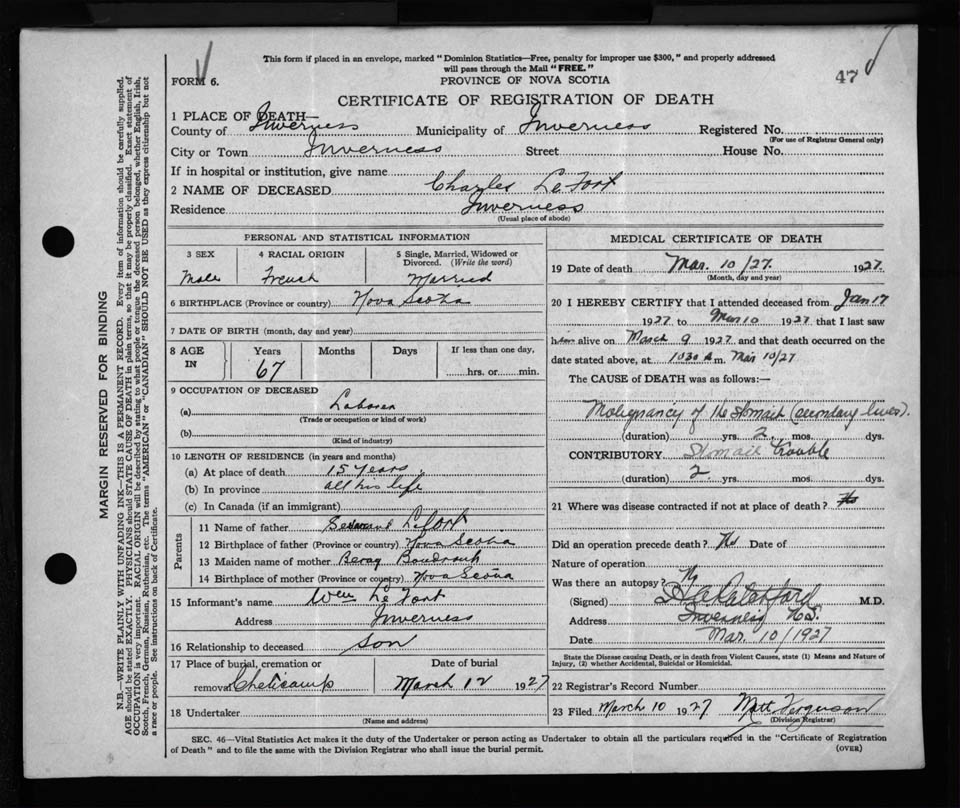 This form if placed in an envelope, marked "Dominion Statistics—Free, penalty for improper use $300," and properly addressed
will pass through the Mail "FREE."
FORM 6.
PROVINCE OF NOVA SCOTIA
47
CERTIFICATE OF REGISTRATION OF DEATH
1 PLACE OF DEATH—
County of Inverness Municipality of Inverness Registered No.
(For use of Registrar General only)
City or Town Inverness Street House No.
If in hospital or institution, give name
2 NAME OF DECEASED Charles LeFort
Residence Inverness
(Usual place of abode)
PERSONAL AND STATISTICAL INFORMATION
3 SEX 4 RACIAL ORIGIN 5 Single, Married, Widowed or
Divorced. (Write the word)
Male French Married
6 BIRTHPLACE (Province or country) Nova Scotia
7 DATE OF BIRTH (month, day and year)
8 AGE IN Years Months Days If less than one day,
67 hrs. or min.
9 OCCUPATION OF DECEASED
(a) Laborer
(Trade or occupation or kind of work)
(b)
(Kind of industry)
10 LENGTH OF RESIDENCE (in years and months)
(a) At place of death 15 years
(b) In province all his life
(c) In Canada (if an immigrant)
Parents
11 Name of father LeFort
12 Birthplace of father (Province or country) Nova Scotia
13 Maiden name of mother
14 Birthplace of mother (Province or country) Nova Scotia
15 Informant's name Wm Le Fort
Address Inverness
16 Relationship to deceased son
17 Place of burial, cremation or Date of burial
removal Cheticamp March 12 1927
18 Undertaker
(Name and address)
MEDICAL CERTIFICATE OF DEATH
19 Date of death Mar. 10/27. 1927.
(Month, day and year)
20 I HEREBY CERTIFY that I attended deceased from Jan 17
1927 to Mar 10 1927 that I last saw
him alive on March 9 1927 and that death occurred on the
date stated above, at 1030 A m. Mar 10/27
The CAUSE of DEATH was as follows:—
Malignancy of the Stomach (secondary liver).
(duration) yrs. 2 mos. dys.
CONTRIBUTORY Stomach trouble
(duration) 2 yrs. mos. dys.
21 Where was disease contracted if not at place of death?
Did an operation precede death? No Date of
Nature of operation
Was there an autopsy? No
(Signed) M.D.
Address Inverness N.S.
Date Mar. 10/1927
State the Disease causing Death, or in death from Violent Causes, state (1) Means and Nature of
Injury, (2) whether Accidental, Suicidal or Homicidal.
22 Registrar's Record Number
23 Filed March 10 1927 Matt Ferguson
(Division Registrar)
SEC. 46—Vital Statistics Act makes it the duty of the Undertaker or person acting as Undertaker to obtain all the particulars required in the "Certificate of Registration
of Death" and to file the same with the Division Registrar who shall issue the burial permit.
(OVER)
MARGIN RESERVED FOR BINDING
N.B.—WRITE PLAINLY WITH UNFADING INK—THIS IS A PERMANENT RECORD. Every item of information should be carefully supplied.
AGE should be stated EXACTLY. PHYSICIANS should STATE CAUSE OF DEATH in plain terms, so that it may be properly classified. Exact statement of
OCCUPATION is very important. RACIAL ORIGIN will be described by stating to what people or tongue the deceased person belonged, whether English, Irish,
Scotch, French, German, Russian, Ruthenian, etc. The terms "AMERICAN" or "CANADIAN" SHOULD NOT BE USED as they express citizenship but not
a race or people. See instructions on back of Certificate.